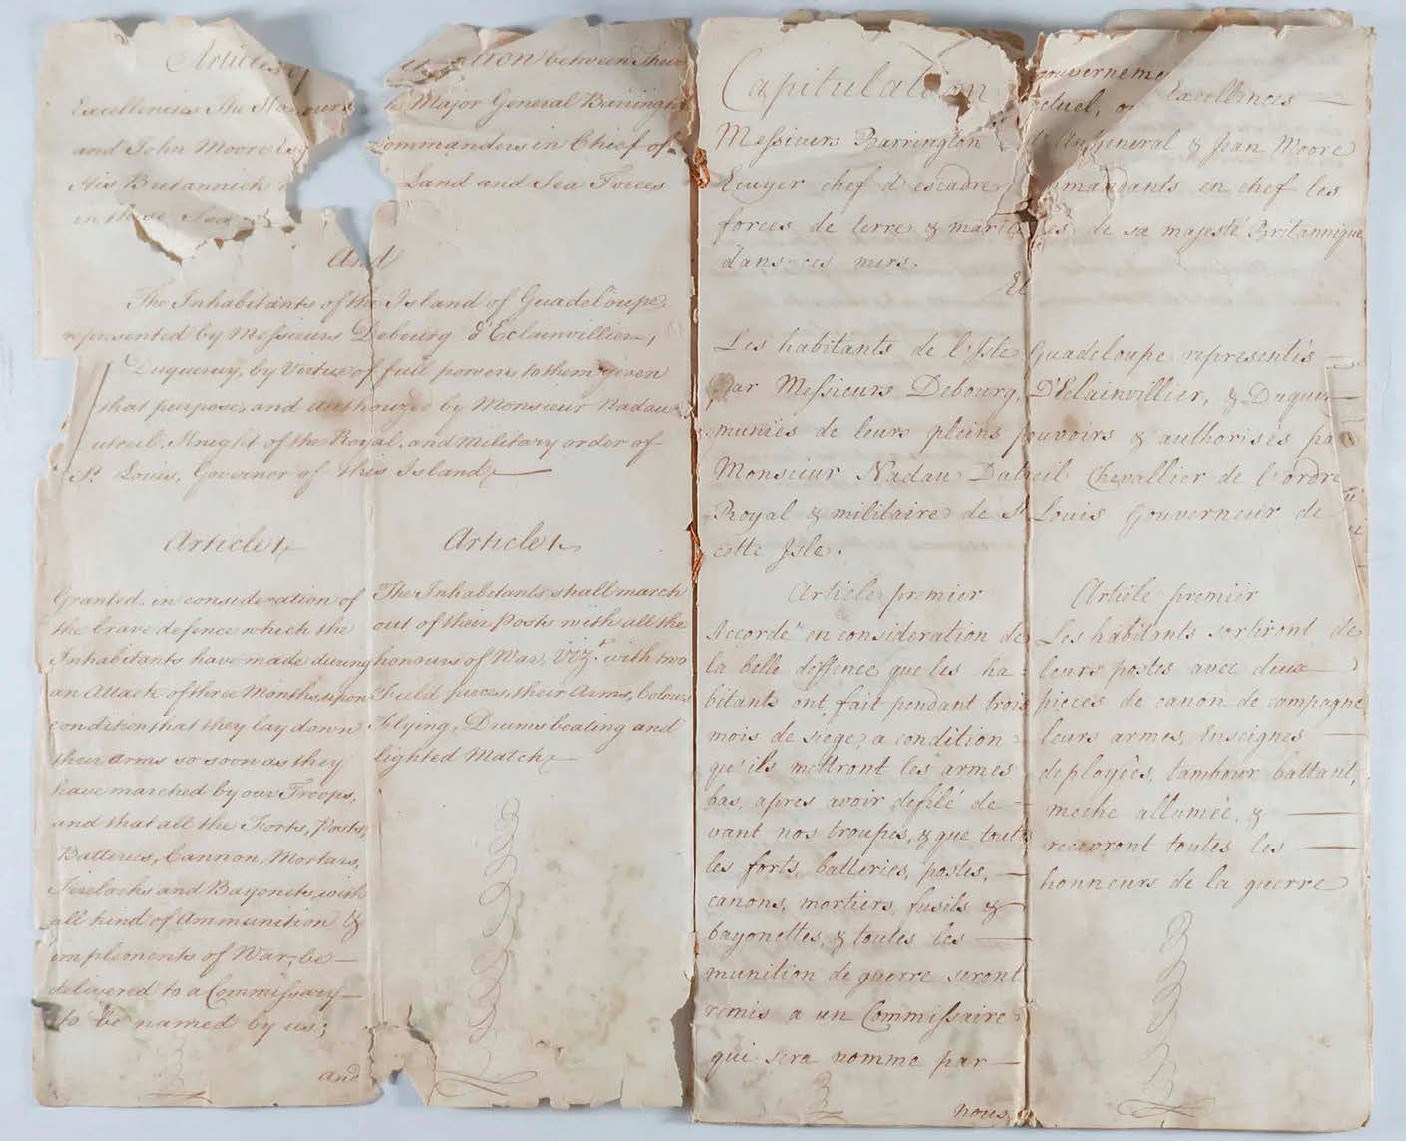 Articles of
between Their
Excellencies The
Major General Barrington
and John Moore Esqr
Commanders in Chief of
His Britannick
Land and Sea Forces
in these Seas
And
The Inhabitants of the Island of Guadeloupe,
represented by Messieurs Debourg, d'Eclainvillier,
Duqueruy, by Virtue of full powers to them given
that purpose, and Authorized by Monsieur Nadau
utreil, Knight of the Royal, and Military order of
St. Louis, Governor of this Island
Article 1
Granted, in consideration of
the brave defence which the
Inhabitants have made during
an Attack of three Months, upon
condition that they lay down
their Arms so soon as they
have marched by our Troops,
and that all the Forts, Posts,
Batteries, Cannon, Mortars,
Firelocks and Bayonets, with
all kind of Ammunition &
implements of War, be
delivered to a Commissary
to be named by us;
and
Article 1
The Inhabitants shall march
out of their Posts with all the
honours of War, Vizt. with two
Field pieces, their Arms, Colours
Flying, Drums beating and
lighted Match
Capitulation
gouverneme
actuel, Excellences
Messieurs Barrington General & Jean Moore
Ecuyer chef d'escadre commandants en chef les
forces de terre & maritimes de sa majesté Britannique
dans ces mers.
Et
Les habitants de l'Isle Guadeloupe representés
Par Messieurs Debourg, D'Eclainvillier, &
munies de leurs pleins pouvoirs & authorisés par
Monsieur Nadau Dutreil Chevallier de l'ordre
Royal & militaire de St. Louis Gouverneur de
cette Isle.
Article premier
Accordé en consideration de
la belle deffence que les ha=
bitants ont fait pendant trois
mois de siege, a condition
qu'ils mettront les armes
bas, apres avoir defilé de
vant nos troupes, & que touts
les forts, batteries, postes,
canons, mortiers, fusils &
bayonettes, & toutes les
munition de guerre seront
remis a un Commissaire
qui sera nomme par
nous,
Article premier
Les habitants sortiront de
leurs postes avec deux
pieces de canon de campagne
leurs armes, Enseignes
deployées, tambour battant,
meche allumée, &
recevront toutes les
honneurs de la guerre